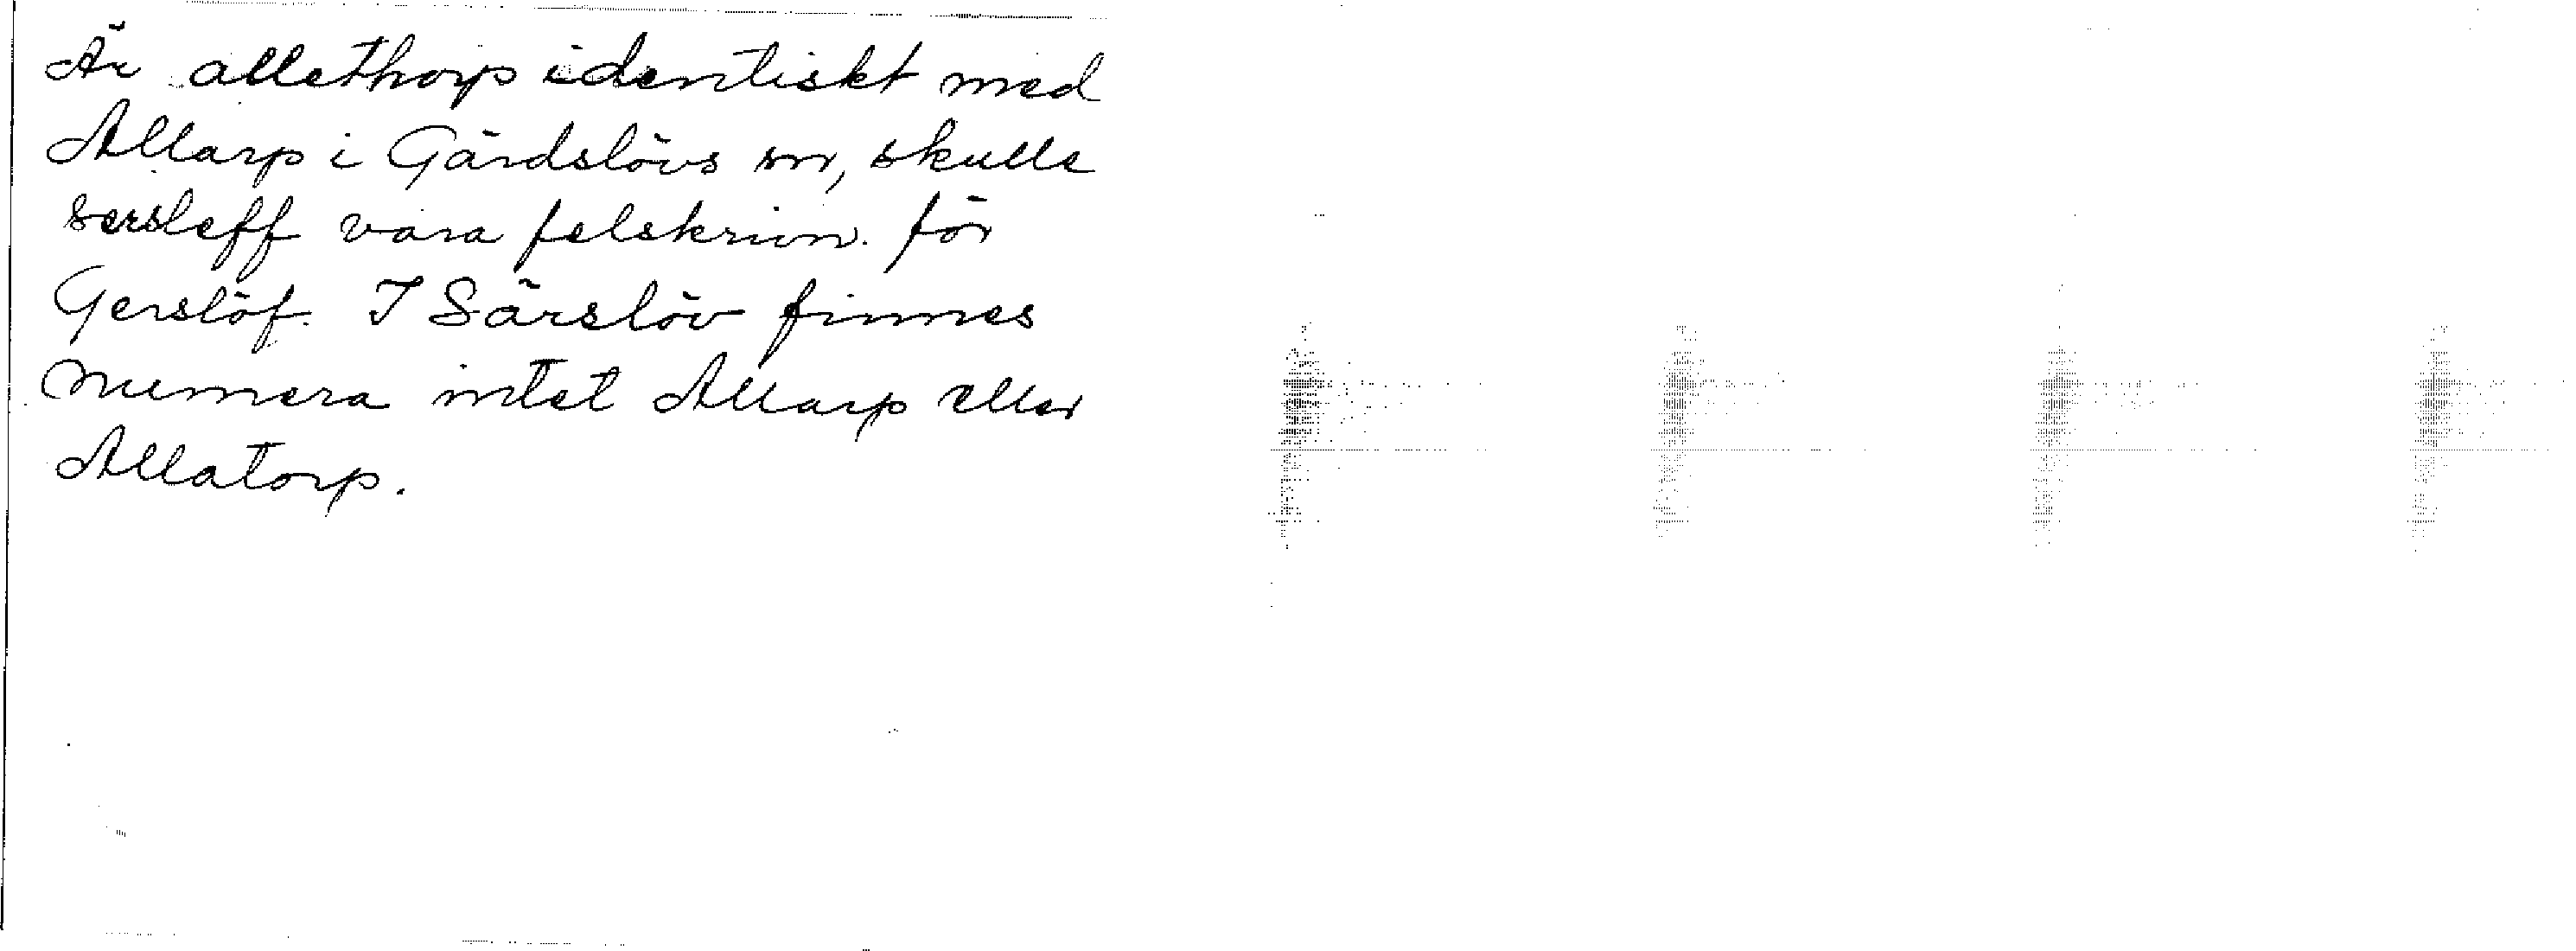 Är allethorp identiskt med
Allarp i Gärdslövs sn, skulle
sersleff vara felskrivn. för
Gerslöf. I Särslöv finnes
numera intet Allarp eller
Allatorp.